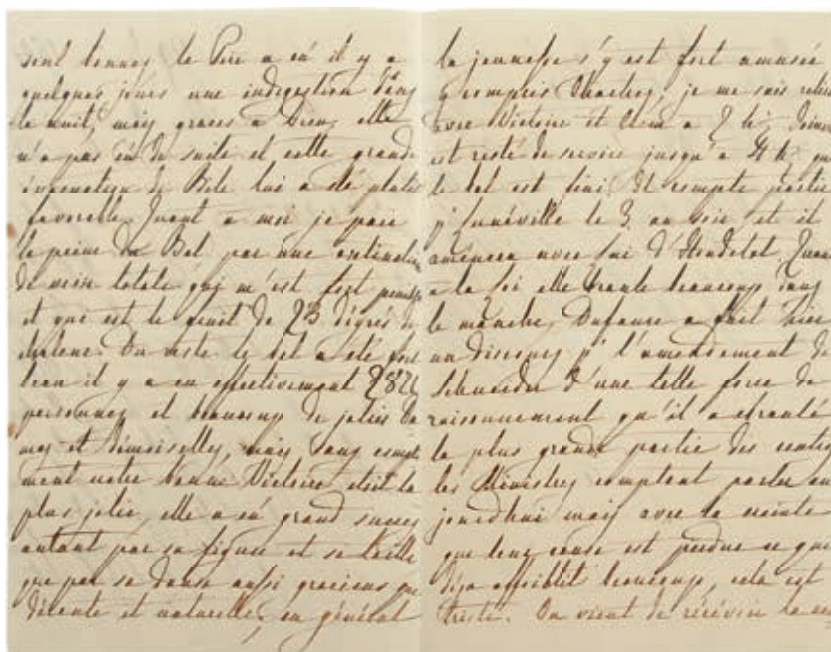 sont bonnes, le Père a eû il y a
quelques jours une indigestion dans
la nuit, mais graces a Dieu, elle
n'a pas eû de suite et cette grande
évacuation de Bile lui a été plutôt
favorable. Quant a moi je paie
la peine du Bal par une extinction
de voix totale qui m'est fort penible
et qui est le fruit de 23 dégrés de
chaleur. Du reste le bal a été fort
beau il y a eu effectivement 282
personnes et beaucoup de jolies Da
mes et Démoiselles, mais sans compli
ment notre bonne Victoire etoit la
plus jolie, elle a eû grand succès
autant par sa figure et sa taille
que par sa danse aussi gracieuse que
décente et naturelle; en général
la jeunesse s'y est fort amusée
y compris Charles, je me suis retirée
avec Victoire et Clém a 2 h;
est resté de service jusqu'a 4 h, que
le bal est fini. Il compte partir
p' Lunéville le 3. au soir et il
amènera avec lui d'Houdetot. Quant
a la loi elle branle beaucoup dans
le manche, Dufaure a fait hier
un discours p' l'amendement de
Schneider d'une telle force de
raisonnement qu'il a ebranlé
la plus grande partie des
les Ministres comptent parler au
jourd'hui mais avec la crainte
que leur cause est perdue ce qui
déja affoiblit beaucoup, cela est
triste. On vient de récévoir la